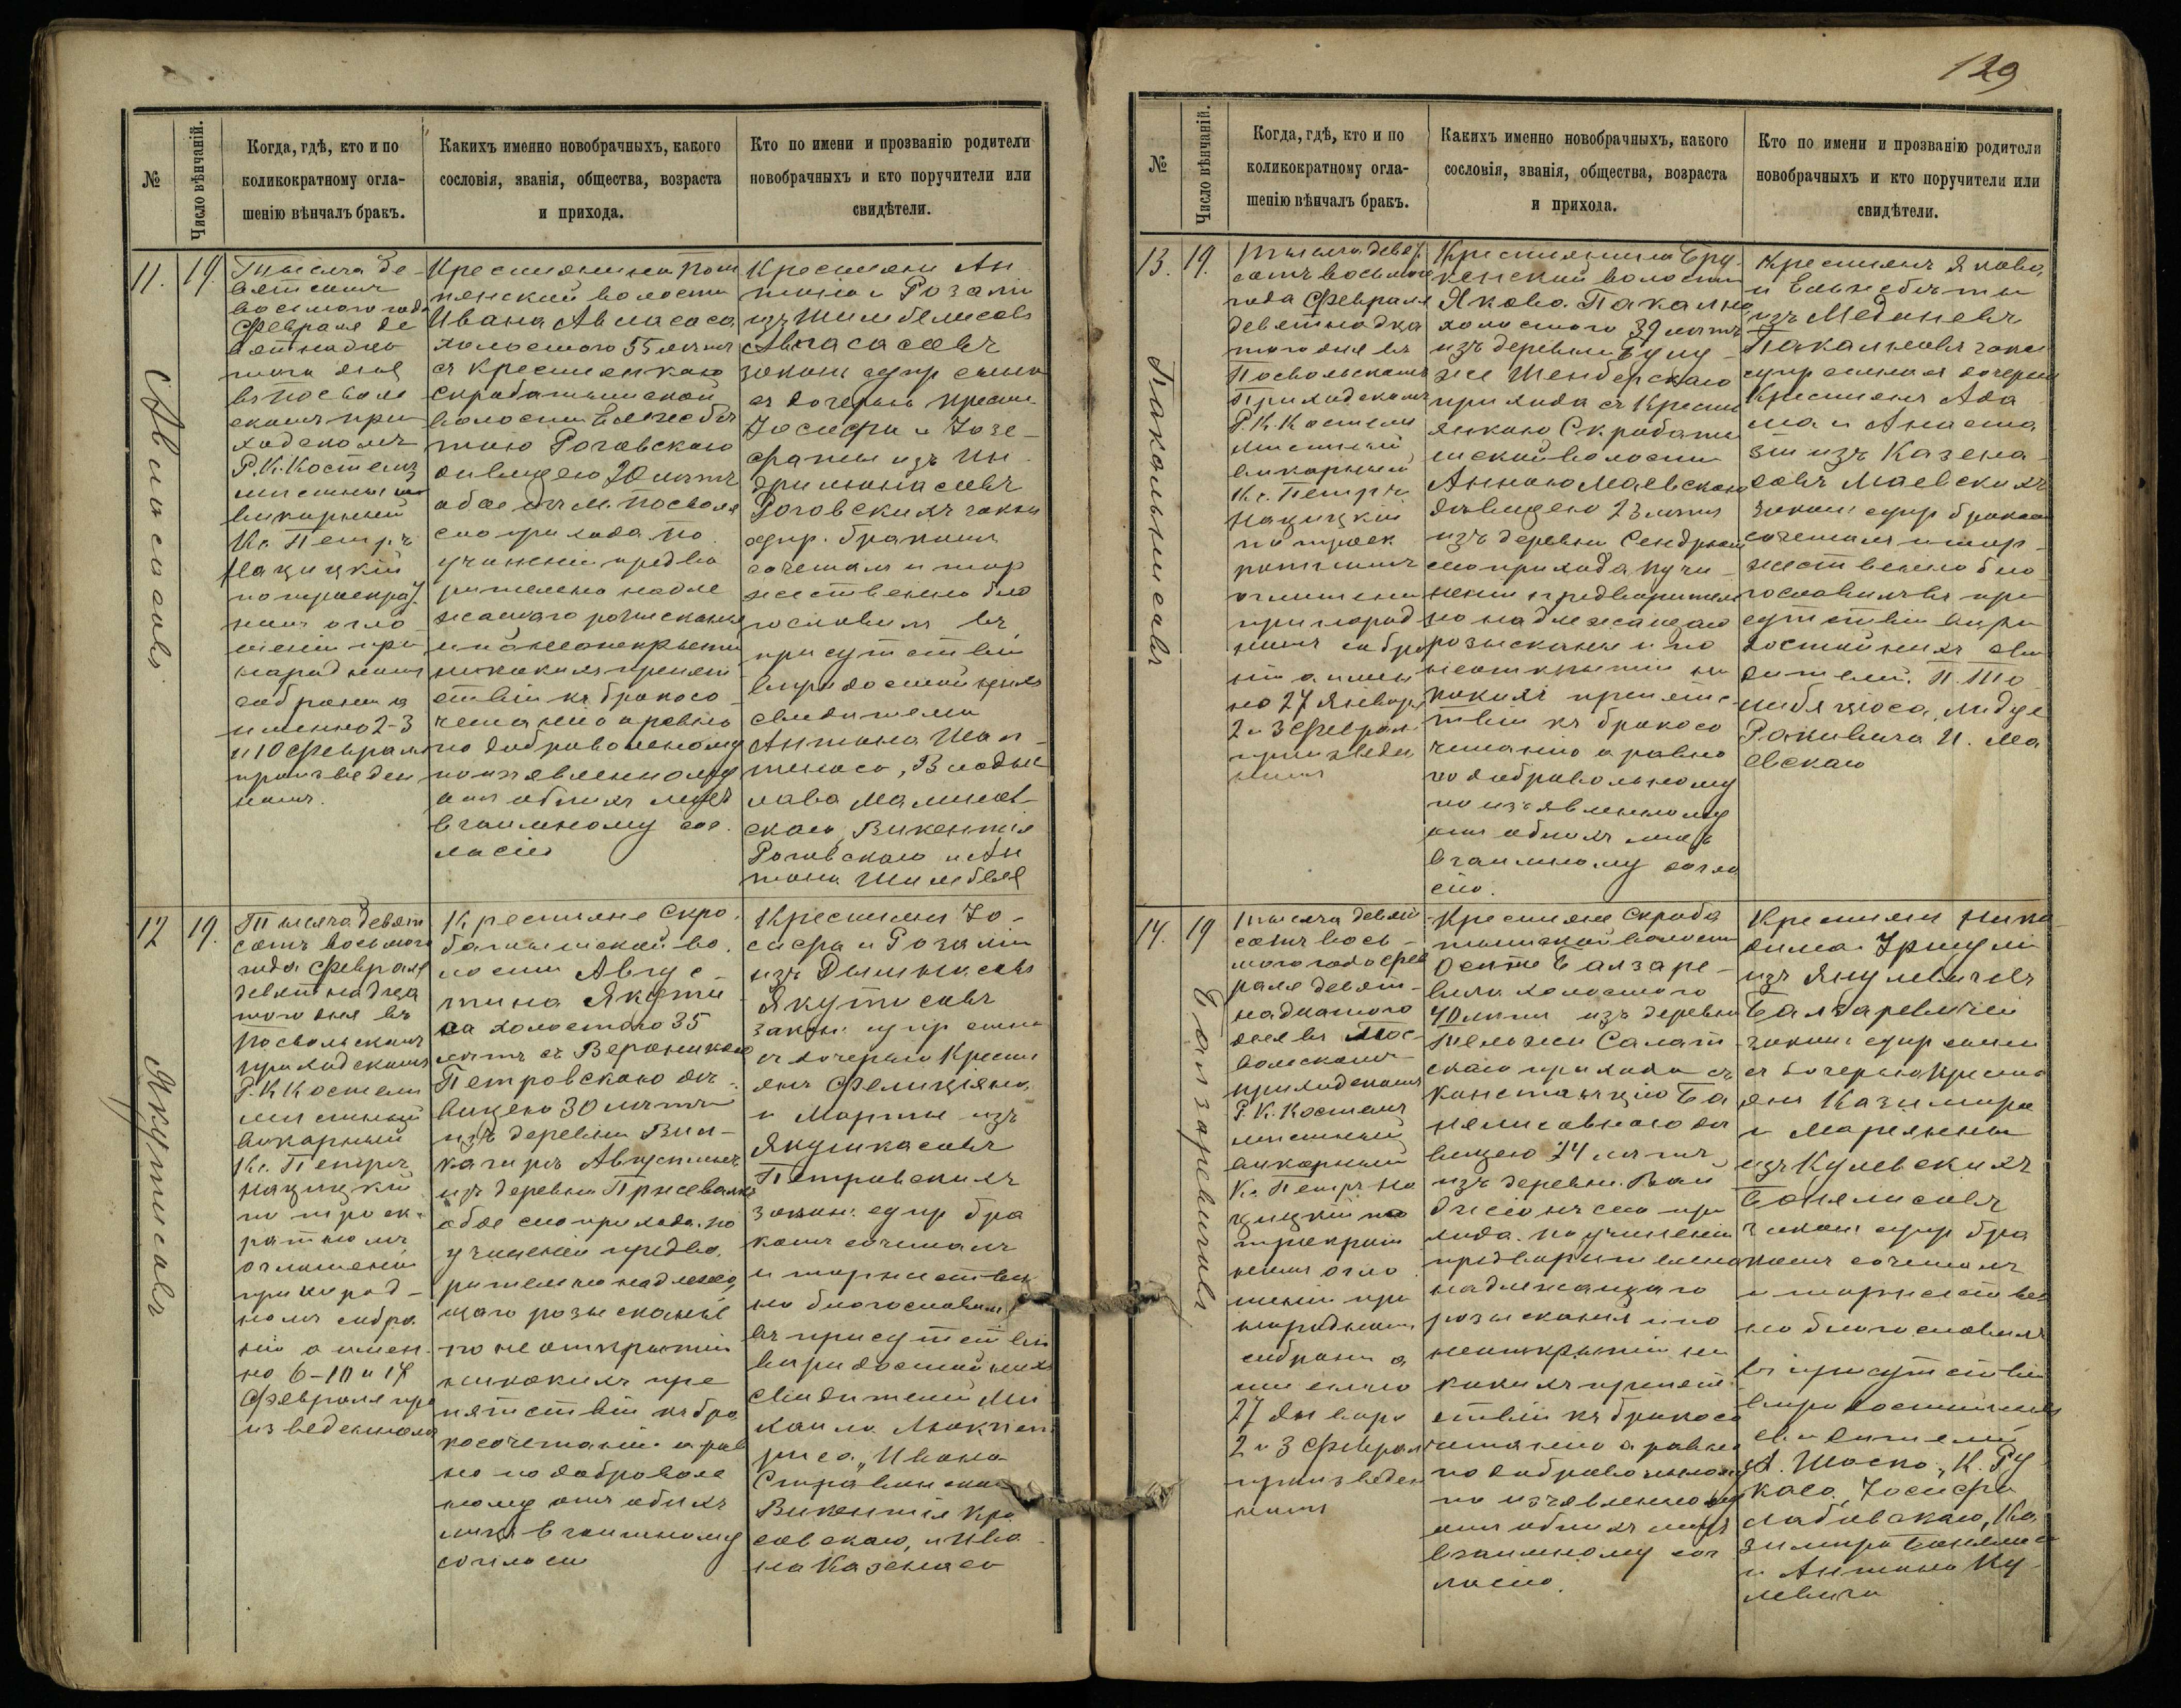 129
№
Число вѣнчаній.
Когда, гдѣ, кто и по
коликократному огла-
шенію вѣнчалъ бракъ.
Какихъ именно новобрачныхъ, какого
сословія, званія, общества, возраста
и прихода.
Кто по имени и прозванію родители
новобрачныхъ и кто поручители или
свидѣтели.
11.
19.
Тысяча де-
вятсотъ
восьмого года
Февраля де
вятнадца
таго дня
въ Посволь
скомъ при
ходскомъ
Р. К. Костелѣ
мѣстный
викарный
Кс. Петръ
Нацицкій
по троекрат
номъ огла
шеніи при
народномъ
собраніи а
именно 2-3
и 10 Февраля
произведен
номъ.
Крестьянина
волости
Ивана Авласаса
холостого 55 лѣтъ
съ крестьянкою
Скробатышской
волости Елисабе
тою Роговскою
дѣвицею 20 лѣтъ
обое Посволь
скаго прихода. По
учиненіи предва
рительно надле
жащаго розысканія
и по неоткрытіи
никакихъ препят
ствій къ бракосо
четанію а равно
по добровольному
по изъявленному
отъ обоихъ лицъ
взаимному сог
ласію
Крестьянъ Ан
тона и Розаліи
изъ Шимбелисовъ
Авласасовъ
закон. супр сына
съ дочерью крестьян
Іосифа и Іозе-
фаты изъ Ин
дрилюнасовъ
Роговскихъ закон
супр. бракомъ
сочеталъ и тор
жественно бла
гословилъ въ
присутствіи
вѣридостойныхъ
свидѣтелей
Антона Шап-
Владис
лава Малинов-
скаго, Викентія
Роговскаго и Ан
тона Шимбеля
Авласасовъ
12
19.
Тысяча девят
сотъ восьмого
года Февраля
девятнадца
таго дня въ
Посвольскомъ
приходскомъ
Р. К. Костелѣ
мѣстный
викарный
Кс. Петръ
Нацицкій
по троек-
ратномъ
оглашеніи
при народ-
номъ собра
ніи а имен-
но 6-10 и 17
Февраля про
изведенномъ
Крестьяне Скро-
батышской во-
лости Авгус-
тина Якути
са холостого 35
лѣтъ съ Вероникою
Петровскою дѣ-
вицею 30 лѣтъ
изъ деревни
Августинъ
изъ деревни
обое сего прихода. по
учиненіи предва-
рительно надлежа
щаго розысканія
по неоткрытіи
никакихъ пре
пятствій къ бра
косочетанію а рав
но по доброволь
ному отъ обоихъ
лицъ взаимному
согласію
Крестьянъ Іо-
сифа и Розаліи
изъ
Якутисовъ
закон: супр сына
съ дочерью Кресть
янъ Фелиціяна
и Марты изъ
Якушкасовъ
Петровскихъ
закон: супр бра
комъ сочеталъ
и торжествен
но благословилъ
въ присутствіи
вѣридостойныхъ
свидѣтелей Ми
хаила
Ивана
Викентія Кра
совскаго, и Ива
на Казенаса
Якутисовъ
№
Число вѣнчаній.
Когда, гдѣ, кто и по
коликократному огла-
шенію вѣнчалъ бракъ.
Какихъ именно новобрачныхъ, какого
сословія, званія, общества, возраста
и прихода.
Кто по имени и прозванію родители
новобрачныхъ и кто поручители или
свидѣтели.
13.
19.
Тысяча девят
сотъ восьмого
года Февраля
девятнадца
таго дня въ
Посвольскомъ
приходскомъ
Р. К. Костелѣ
мѣстный
викарный
Кс. Петръ
Нацицкій
по троек
ратномъ
оглашеніи
при народ
номъ собра
ніи а имен
но 27 Января
2 и 3 Феврал
произведен
номъ
Крестьянина
волости
Якова Пакална
холостого 39 лѣтъ
изъ деревни
прихода съ Кресть
янкою Скробаты
шской волости
Анною Маевскою
дѣвицею 23 лѣтъ
изъ деревни
сего прихода, по учи-
неніи предварительн
но надлежащаго
розысканія и по
неоткрытіи ни
какихъ препятс
твій къ бракосо
четанію а равно
по добровольному
по изъявленному
отъ обоихъ лицъ
взаимному согла
сію.
Крестьянъ Якова
и Елисабеты
изъ
Пакальнисовъ закон
супр сына съ дочерью
Крестьянъ Ада
ма и Анаста
зіи изъ Казена
совъ Маевскихъ
закон: супр бракомъ
сочеталъ и тор-
жественно бла
гословилъ въ при
сутствіи вѣри
достойныхъ сви
дѣтелей.
Ма
евскаго
Пакальнисовъ
14.
19
Тысяча девят
сотъ вось-
мого года Фев
раля девят-
надцатого
дня въ Пос-
вольскомъ
приходскомъ
Р. К. Костелѣ
мѣстный
викарный
Кс. Петръ На
цицкій по
троекрат
номъ огла
шеніи при
народномъ
собраніи а
именно
27 Января
2 и 3 Феврал
произведен
номъ
Крестьяне Скроба
тышской волости
Балзаре-
вича холостого
40 лѣтъ изъ деревни
Салат
скаго прихода съ
Констанціею Ба
нялисовною дѣ
вицею 24 лѣтъ
изъ деревни
сего при
хода. по учиненіи
предварительно
надлежащаго
розысканія и по
неоткрытіи ни
какихъ препят
ствій къ бракосо
четанію а равно
по добровольному
по изъявленному
отъ обоихъ лицъ
взаимному сог
ласію.
Крестьянъ Нико
дима и Уршули
изъ
Балзаревичей
закон: супр сына
съ дочерью кресть
янъ Казимира
и Маріянны
изъ Кулевскихъ
Банялисовъ
закон: супр бра
комъ сочеталъ
и торжествен
но благословилъ
въ присутствіи
вѣридостойныхъ
свидѣтелей
Іосифа
Ка
зимира Банялиса
и Антона Ку-
левича
Балзаревичовъ